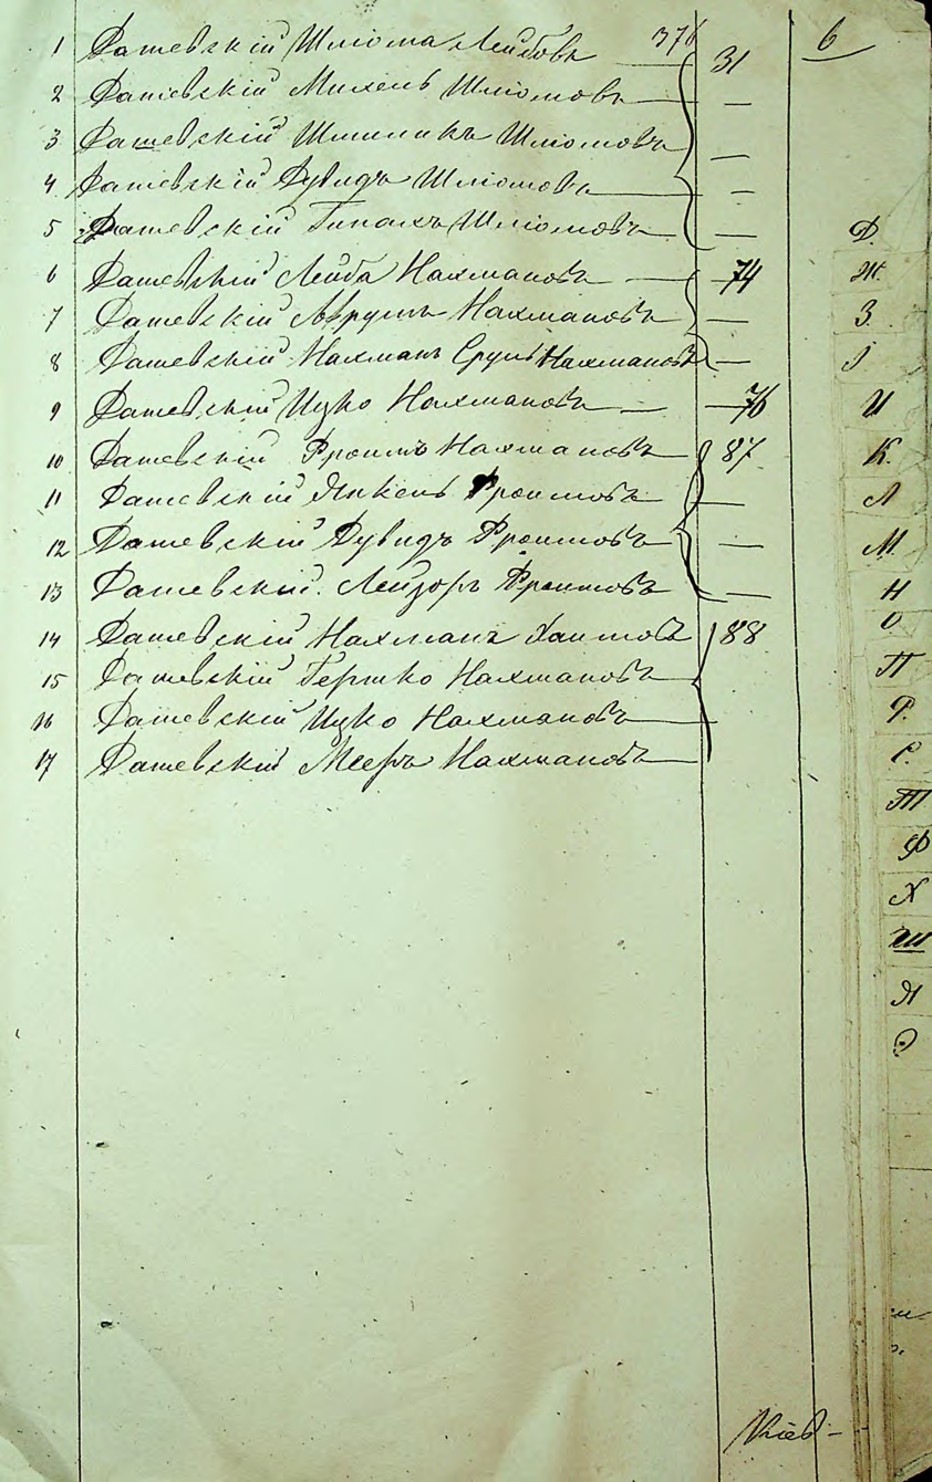 6
1 Дашевскій Шліома Лейбовъ 376 31
2 Дашевскій Михель Шліомовъ —
3 Дашевскій Шмиликъ Шліомовъ —
4 Дашевскій Дувидъ Шліомовъ —
5 Дашевскій Шліомовъ —
6 Дашевскій Лейба Нахмановъ — 74
7 Дашевскій Аврумъ Нахмановъ —
8 Дашевскій Нахманъ Сруль Нахмановъ —
9 Дашевскій Ицко Нахмановъ — 76
10 Дашевскій Фроимъ Нахмановъ 87
11 Дашевскій Янкель Фроимовъ —
12 Дашевскій Дувидъ Фроимовъ —
13 Дашевскій Лейзоръ Фроимовъ —
14 Дашевскій Нахманъ Хаимовъ 88
15 Дашевскій Гершко Нахмановъ
16 Дашевскій Ицко Нахмановъ
17 Дашевскій Мееръ Нахмановъ
Д.
Ж.
З.
І
И
К.
Л
М.
Н
О
П
Р.
С.
Т
Ф
Х
Ш
Я
Кіев-